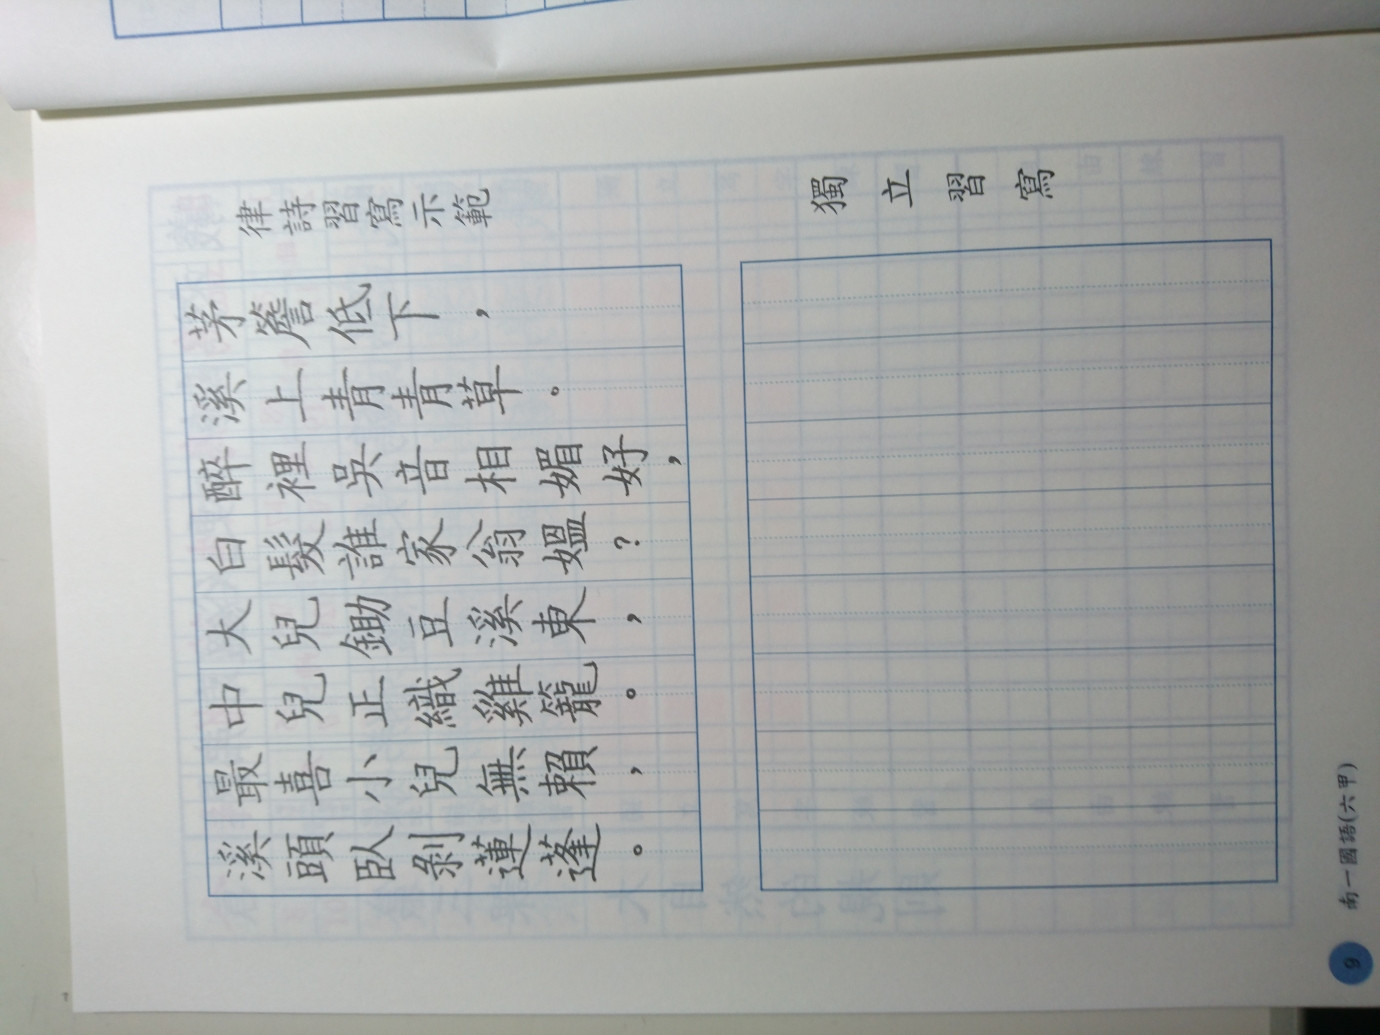 律詩習寫示範
茅簷低下，
溪上青青草。
醉裡吳音相媚好，
白髮誰家翁媼？
大兒鋤豆溪東，
中兒正織雞籠。
最喜小兒無賴，
溪頭臥剝蓮蓬。
獨立習寫
南一國語(六甲)
9